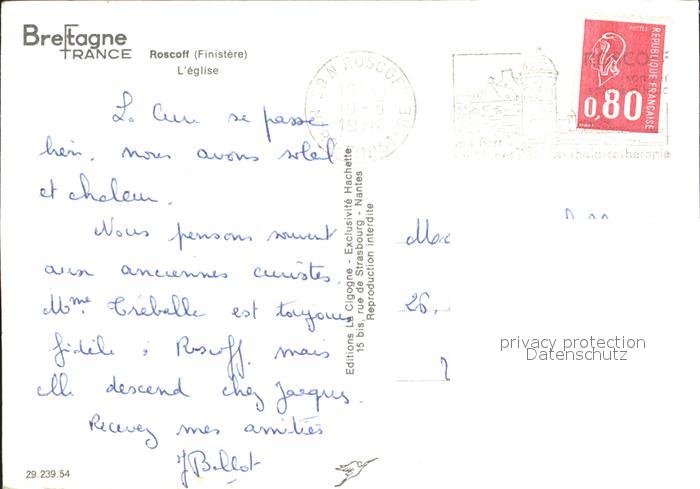 Bretagne
FRANCE
Roscoff (Finistère)
L'église
La Cure se passe
bien, nous avons soleil
et chaleur.
Nous pensons souvent
aux anciennes curistes.
Mme Tréballe est toujours
fidèle à Roscoff, mais
elle descend chez Jacques.
Recevez mes amitiés
J Bellot
29.239.54
Editions La Cigogne - Exclusivité Hachette
15 bis, rue de Strasbourg - Nantes
Reproduction interdite
29 N ROSCOFF
FINISTERE
ROSCOFF
son
thalassotherapie
POSTES
REPUBLIQUE FRANÇAISE
0,80
26,
privacy protection
Datenschutz